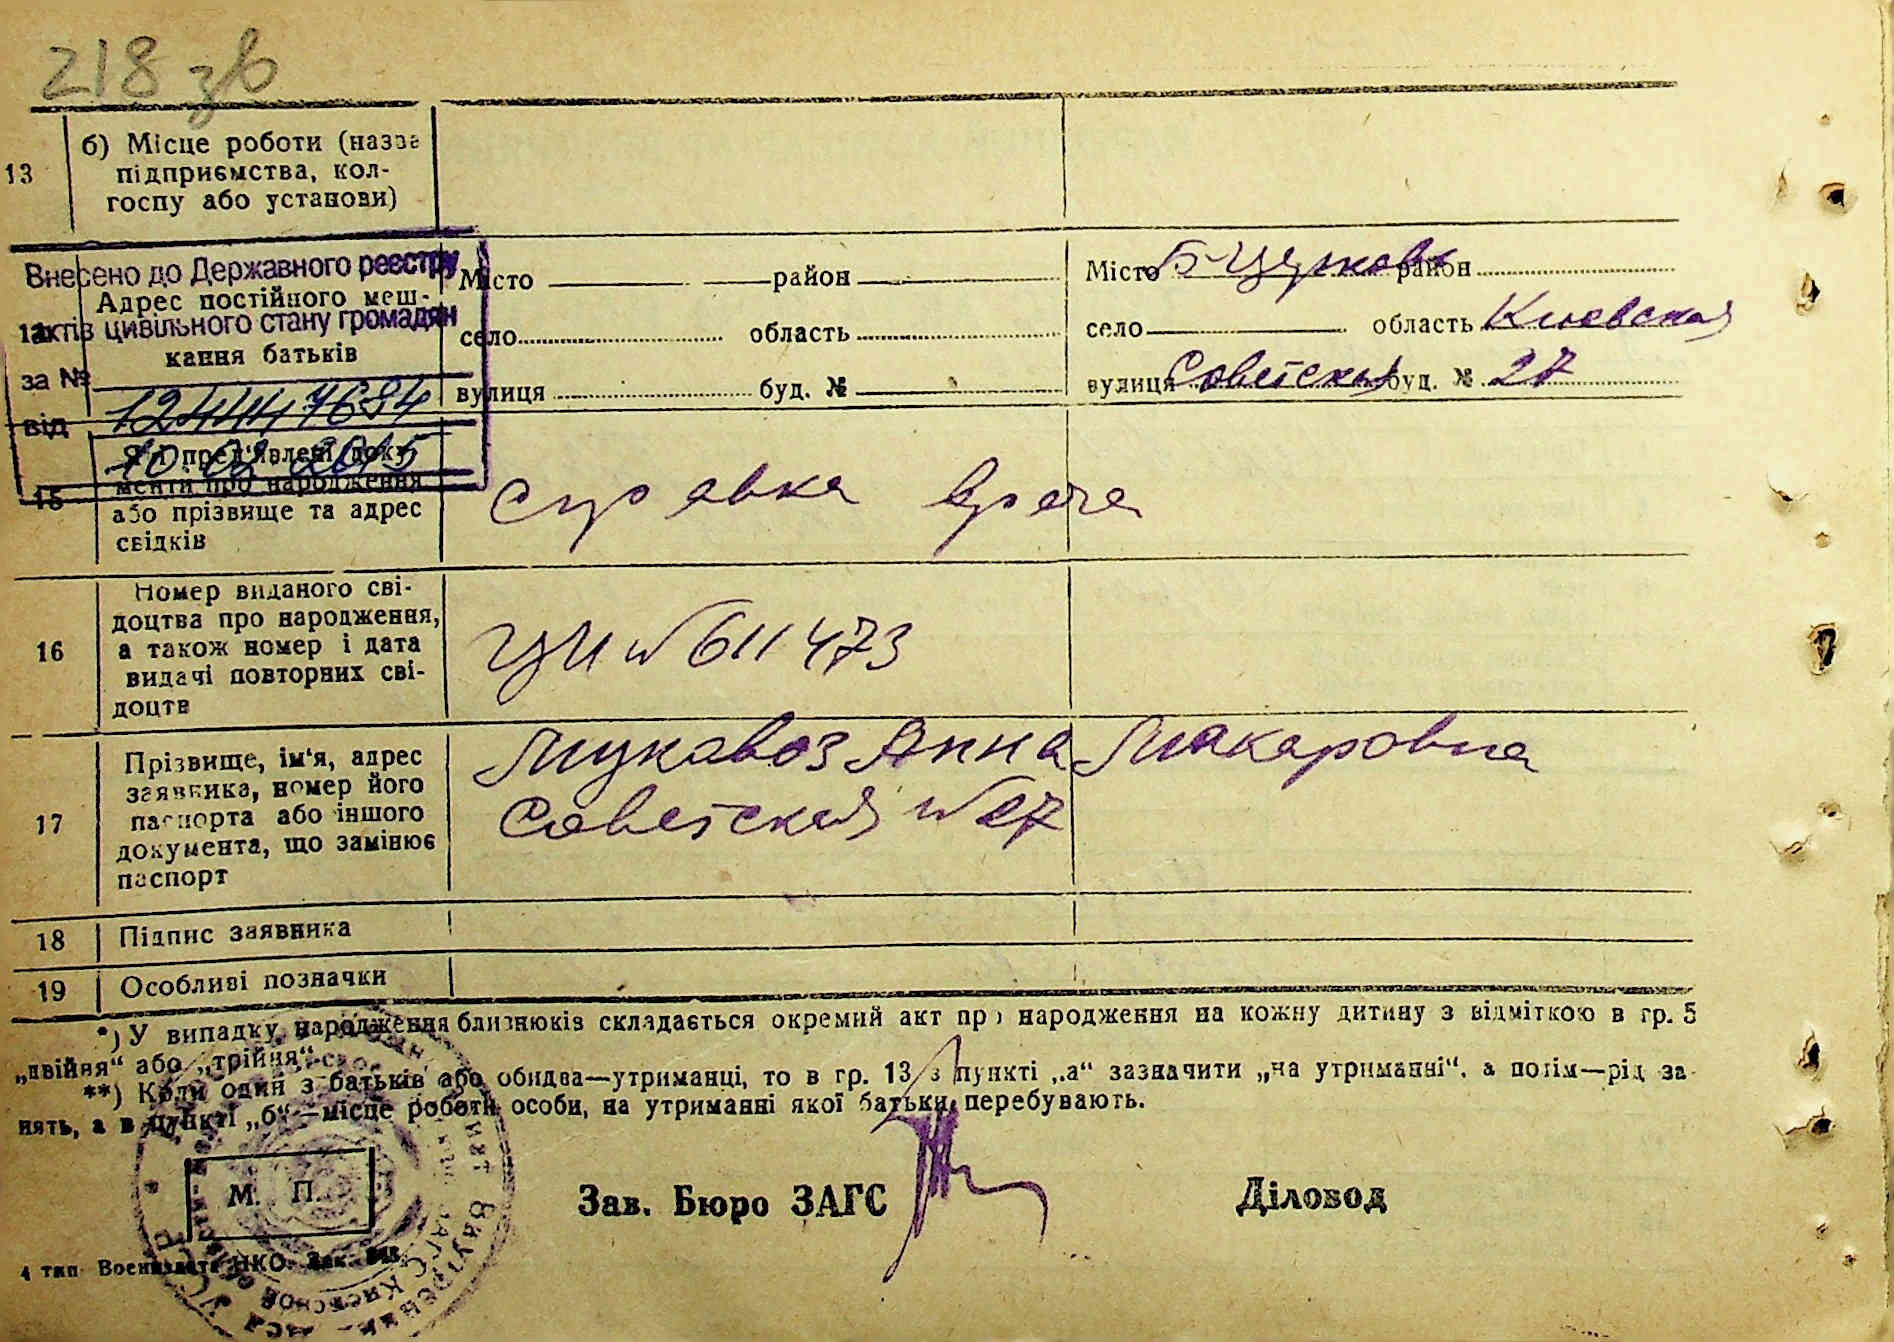 218 зв
13
б) Місце роботи (назва
підприємства, кол-
госпу або установи)
Внесено до Державного реєстру
актів цивільного стану громадян
за № 12444 7684
від 10.02.2015
Адрес постійного меш-
кання батьків
Місто район
село область
вулиця буд. №
Місто Б-Церковь район
село область Киевская
вулиця Советская буд. № 27
15
Які пред'явлені доку-
менти про народження
або прізвище та адрес
свідків
Справка врача
16
Номер виданого сві-
доцтва про народження,
а також номер і дата
видачі повторних сві-
доцтв
ЦИ № 611473
17
Прізвище, ім'я, адрес
заявника, номер його
паспорта або іншого
документа, що замінює
паспорт
Мукавоз Анна Макаровна
Советская № 27
18 Підпис заявника
19 Особливі позначки
*) У випадку народження близнюків складається окремий акт про народження на кожну дитину з відміткою в гр. 5
„двійня“ або „трійня“.
**) Коли один з батьків або обидва—утриманці, то в гр. 13 в пункті „а“ зазначити „на утриманні“, а потім—рід за-
нять, а в пункті „б“—місце роботи особи, на утриманні якої батьки перебувають.
М. П.
Зав. Бюро ЗАГС
Діловод
4 тип Воениздата НКО. Зак.